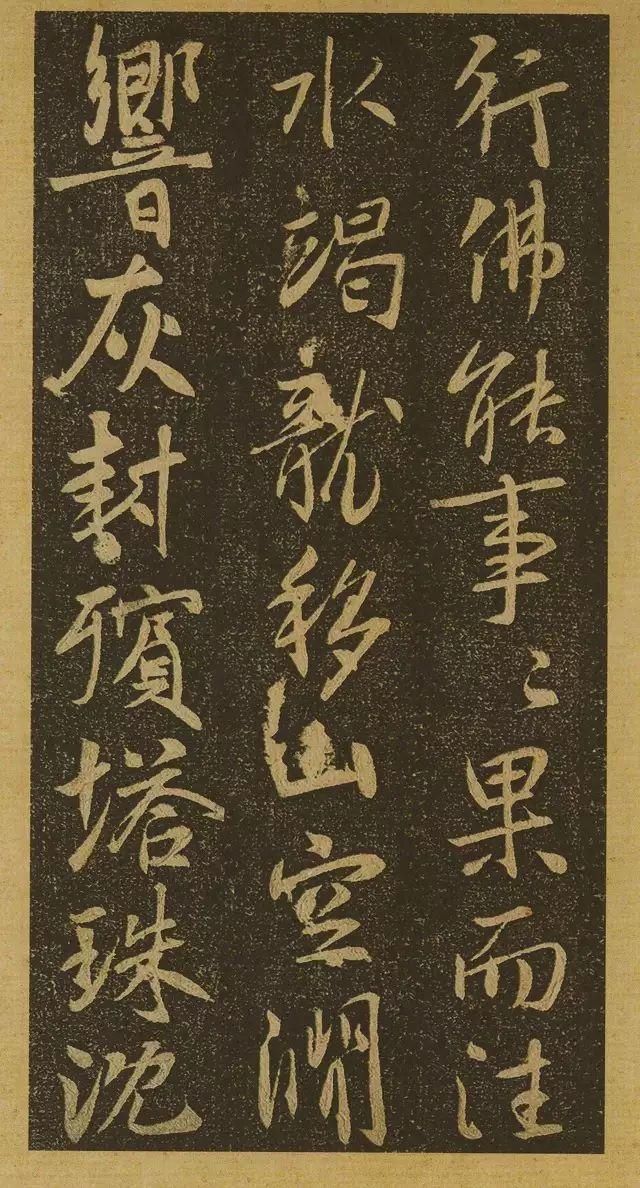 行佛能事〻果而往
水竭龍移山空澗
響灰封殯塔珠沈